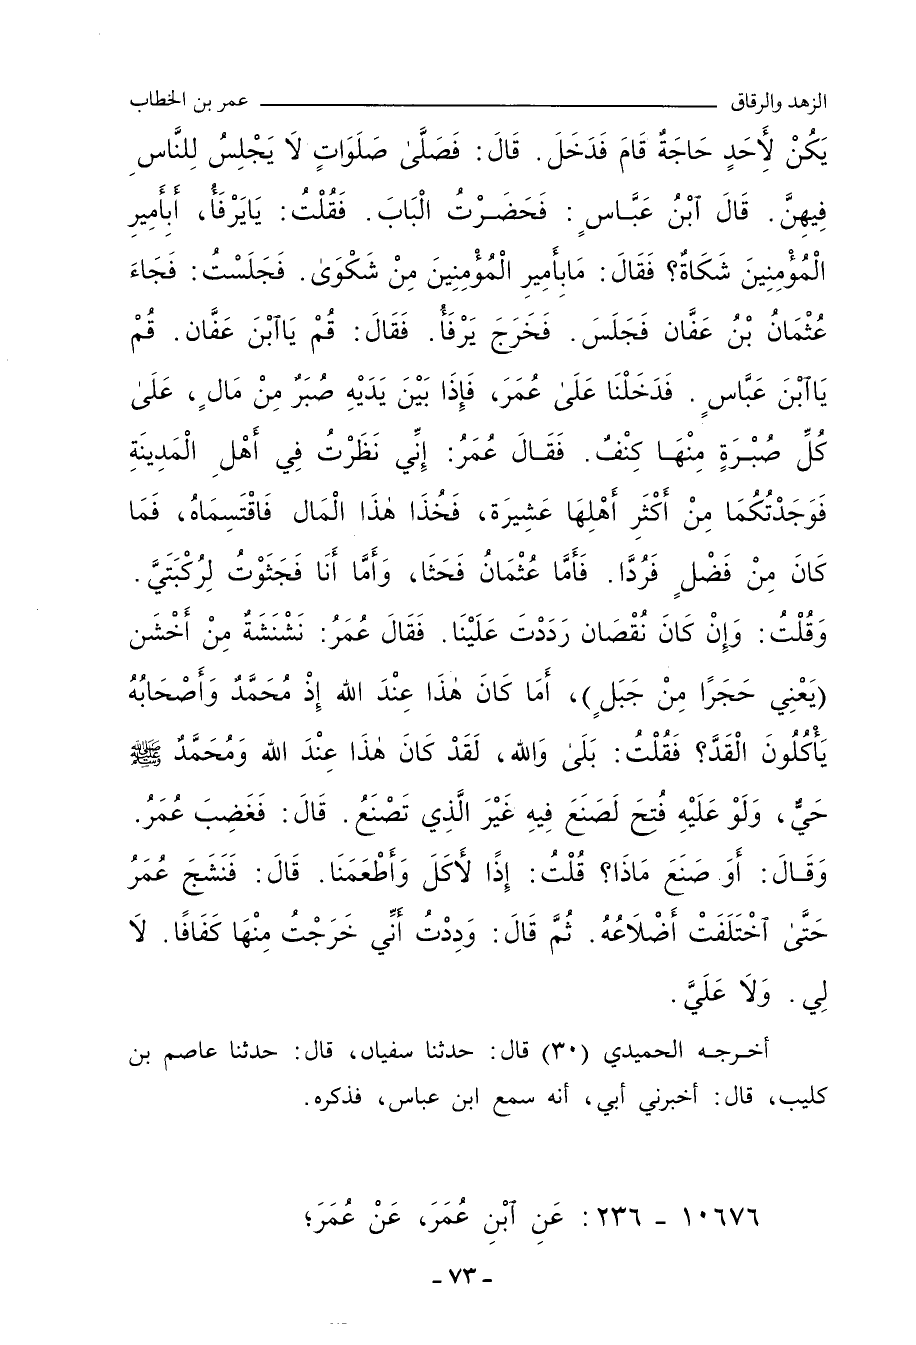 الزهد والرقاق ــــــــــــــــــــــــــــــ عمر بن الخطاب
يَكُنْ لِأَحَدٍ حَاجَةٌ قَامَ فَدَخَلَ. قَالَ: فَصَلَّىٰ صَلَوَاتٍ لَا يَجْلِسُ لِلنَّاسِ
فِيهِنَّ. قَالَ ٱبْنُ عَبَّاسٍ: فَحَضَرْتُ الْبَابَ. فَقُلْتُ: يَايَرْفَأُ، أَبِأَمِيرِ
الْمُؤْمِنِينَ شَكَاةٌ؟ فَقَالَ: مَابِأَمِيرِ الْمُؤْمِنِينَ مِنْ شَكْوَىٰ. فَجَلَسْتُ: فَجَاءَ
عُثْمَانُ بْنُ عَفَّان فَجَلَسَ. فَخَرَجَ يَرْفَأُ. فَقَالَ: قُمْ يَاٱبْنَ عَفَّان. قُمْ
يَاٱبْنَ عَبَّاسٍ. فَدَخَلْنَا عَلَىٰ عُمَرَ، فَإِذَا بَيْنَ يَدَيْهِ صُبَرٌ مِنْ مَالٍ، عَلَىٰ
كُلِّ صُبْرَةٍ مِنْهَا كِنْفٌ. فَقَالَ عُمَرُ: إِنِّي نَظَرْتُ فِي أَهْلِ الْمَدِينَةِ
فَوَجَدْتُكُمَا مِنْ أَكْثَرِ أَهْلِهَا عَشِيرَة، فَخُذَا هٰذَا الْمَال فَاقْتَسِمَاهُ، فَمَا
كَانَ مِنْ فَضْلٍ فَرُدَّا. فَأَمَّا عُثْمَانُ فَحَثَا، وَأَمَّا أَنَا فَجَثَوْتُ لِرُكْبَتَيَّ.
وَقُلْتُ: وَإِنْ كَانَ نُقْصَان رَدَدْتَ عَلَيْنَا. فَقَالَ عُمَرُ: نَشْنَشَةٌ مِنْ أَخْشَن
(يَعْنِي حَجَرًا مِنْ جَبَلٍ)، أَمَا كَانَ هٰذَا عِنْدَ الله إِذْ مُحَمَّدٌ وَأَصْحَابُهُ
يَأْكُلُونَ الْقَدَّ؟ فَقُلْتُ: بَلَىٰ وَالله، لَقَدْ كَانَ هٰذَا عِنْدَ الله وَمُحَمَّدٌ ﷺ
حَيٌّ، وَلَوْ عَلَيْهِ فُتِحَ لَصَنَعَ فِيهِ غَيْرَ الَّذِي تَصْنَعُ. قَالَ: فَغَضِبَ عُمَرُ.
وَقَالَ: أَوَ صَنَعَ مَاذَا؟ قُلْتُ: إِذًا لَأَكَلَ وَأَطْعَمَنَا. قَالَ: فَنَشَجَ عُمَرُ
حَتَّىٰ ٱخْتَلَفَتْ أَضْلَاعُهُ. ثُمَّ قَالَ: وَدِدْتُ أَنِّي خَرَجْتُ مِنْهَا كَفَافًا. لَا
لِي. وَلَا عَلَيَّ.
أخرجه الحميدي (٣٠) قال: حدثنا سفيان، قال: حدثنا عاصم بن
كليب، قال: أخبرني أبي، أنه سمع ابن عباس، فذكره.
١٠٦٧٦ - ٢٣٦: عَنِ ٱبْنِ عُمَرَ، عَنْ عُمَرَ؛
- ٧٣ -